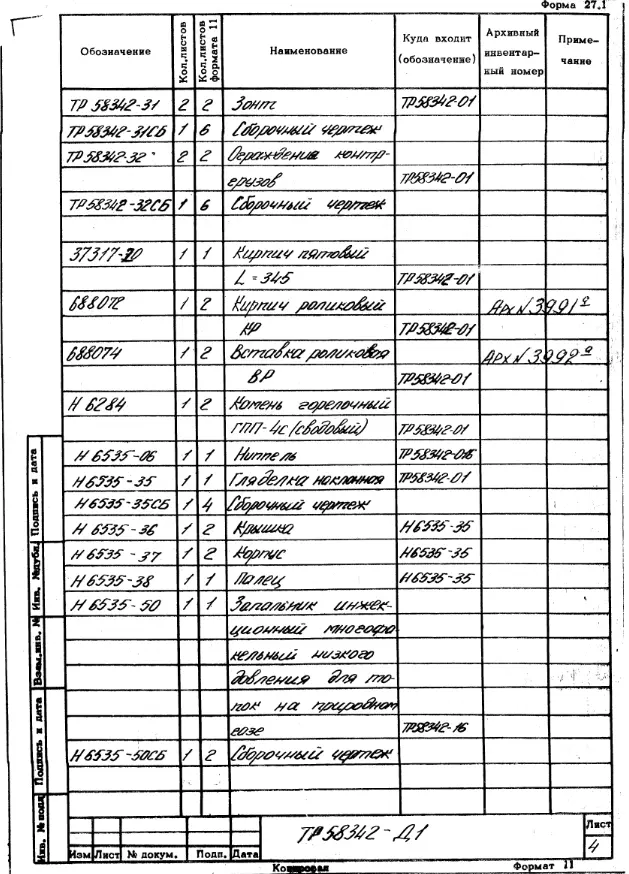 Форма 27.1
Обозначение Кол.листов Кол.листов формата 11 Наименование Куда входит (обозначение) Архивный инвентар-ный номер Приме-чание
ТР 58342-31 2 2 Зонт ТР58342-01
ТР58342-31СБ 1 6 Сборочный чертеж
ТР 58342-32 2 2 Ограждения контр-
грузов ТР58342-01
ТР58342-32СБ 1 6 Сборочный чертеж
37317- 1 1 Кирпич пятовый
L = 345 ТР58342-01
688072 1 2 Кирпич роликовый Арх№3991а
КР ТР58342-01
688074 1 2 Вставка роликовая Арх№3992а
ВР ТР58342-01
Н 6284 1 2 Камень горелочный
ГПП-4с (сводовый) ТР58342-01
Н 6535-06 1 1 Ниппель
Н 6535-35 1 1 Гляделка наклонная ТР58342-01
Н 6535-35СБ 1 4 Сборочный чертеж
Н 6535-36 1 2 Крышка Н6535-35
Н 6535-37 1 2 Корпус Н6535-35
Н 6535-38 1 1 Палец Н6535-35
Н 6535-50 1 1 Запальник инжек-
ционный многофа-
кельный низкого
давления для то-
пок на природном
газе ТР58342-16
Н 6535-50СБ 1 2 Сборочный чертеж
Подпись и дата
Инв. №дубл.
Взам.инв. №
Подпись и дата
Инв. № подл
ТР58342-Д1
Лист
4
Изм Лист № докум. Подп. Дата
Копировал Формат 11